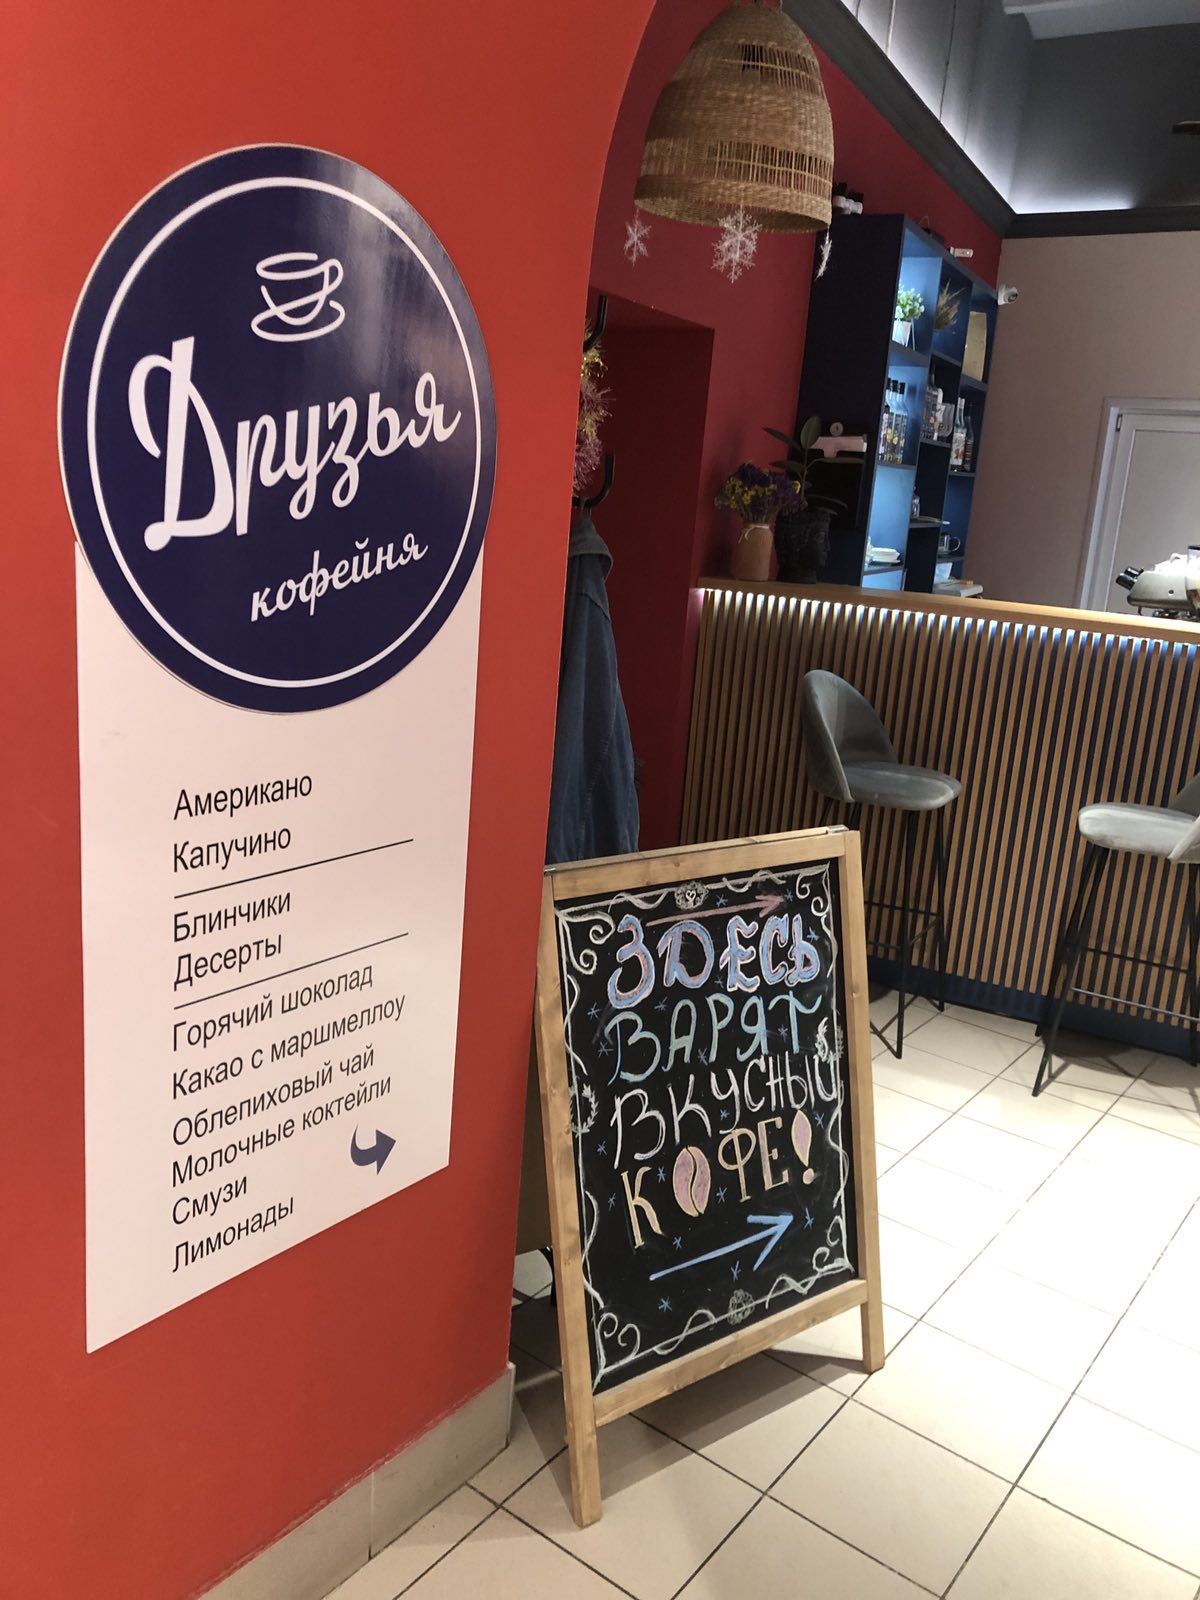 Друзья
кофейня
Американо
Капучино
Блинчики
Десерты
Горячий шоколад
Какао с маршмеллоу
Облепиховый чай
Молочные коктейли
Смузи
Лимонады
ЗДЕСЬ
ВАРЯТ
ВКУСНЫЙ
КОФЕ!